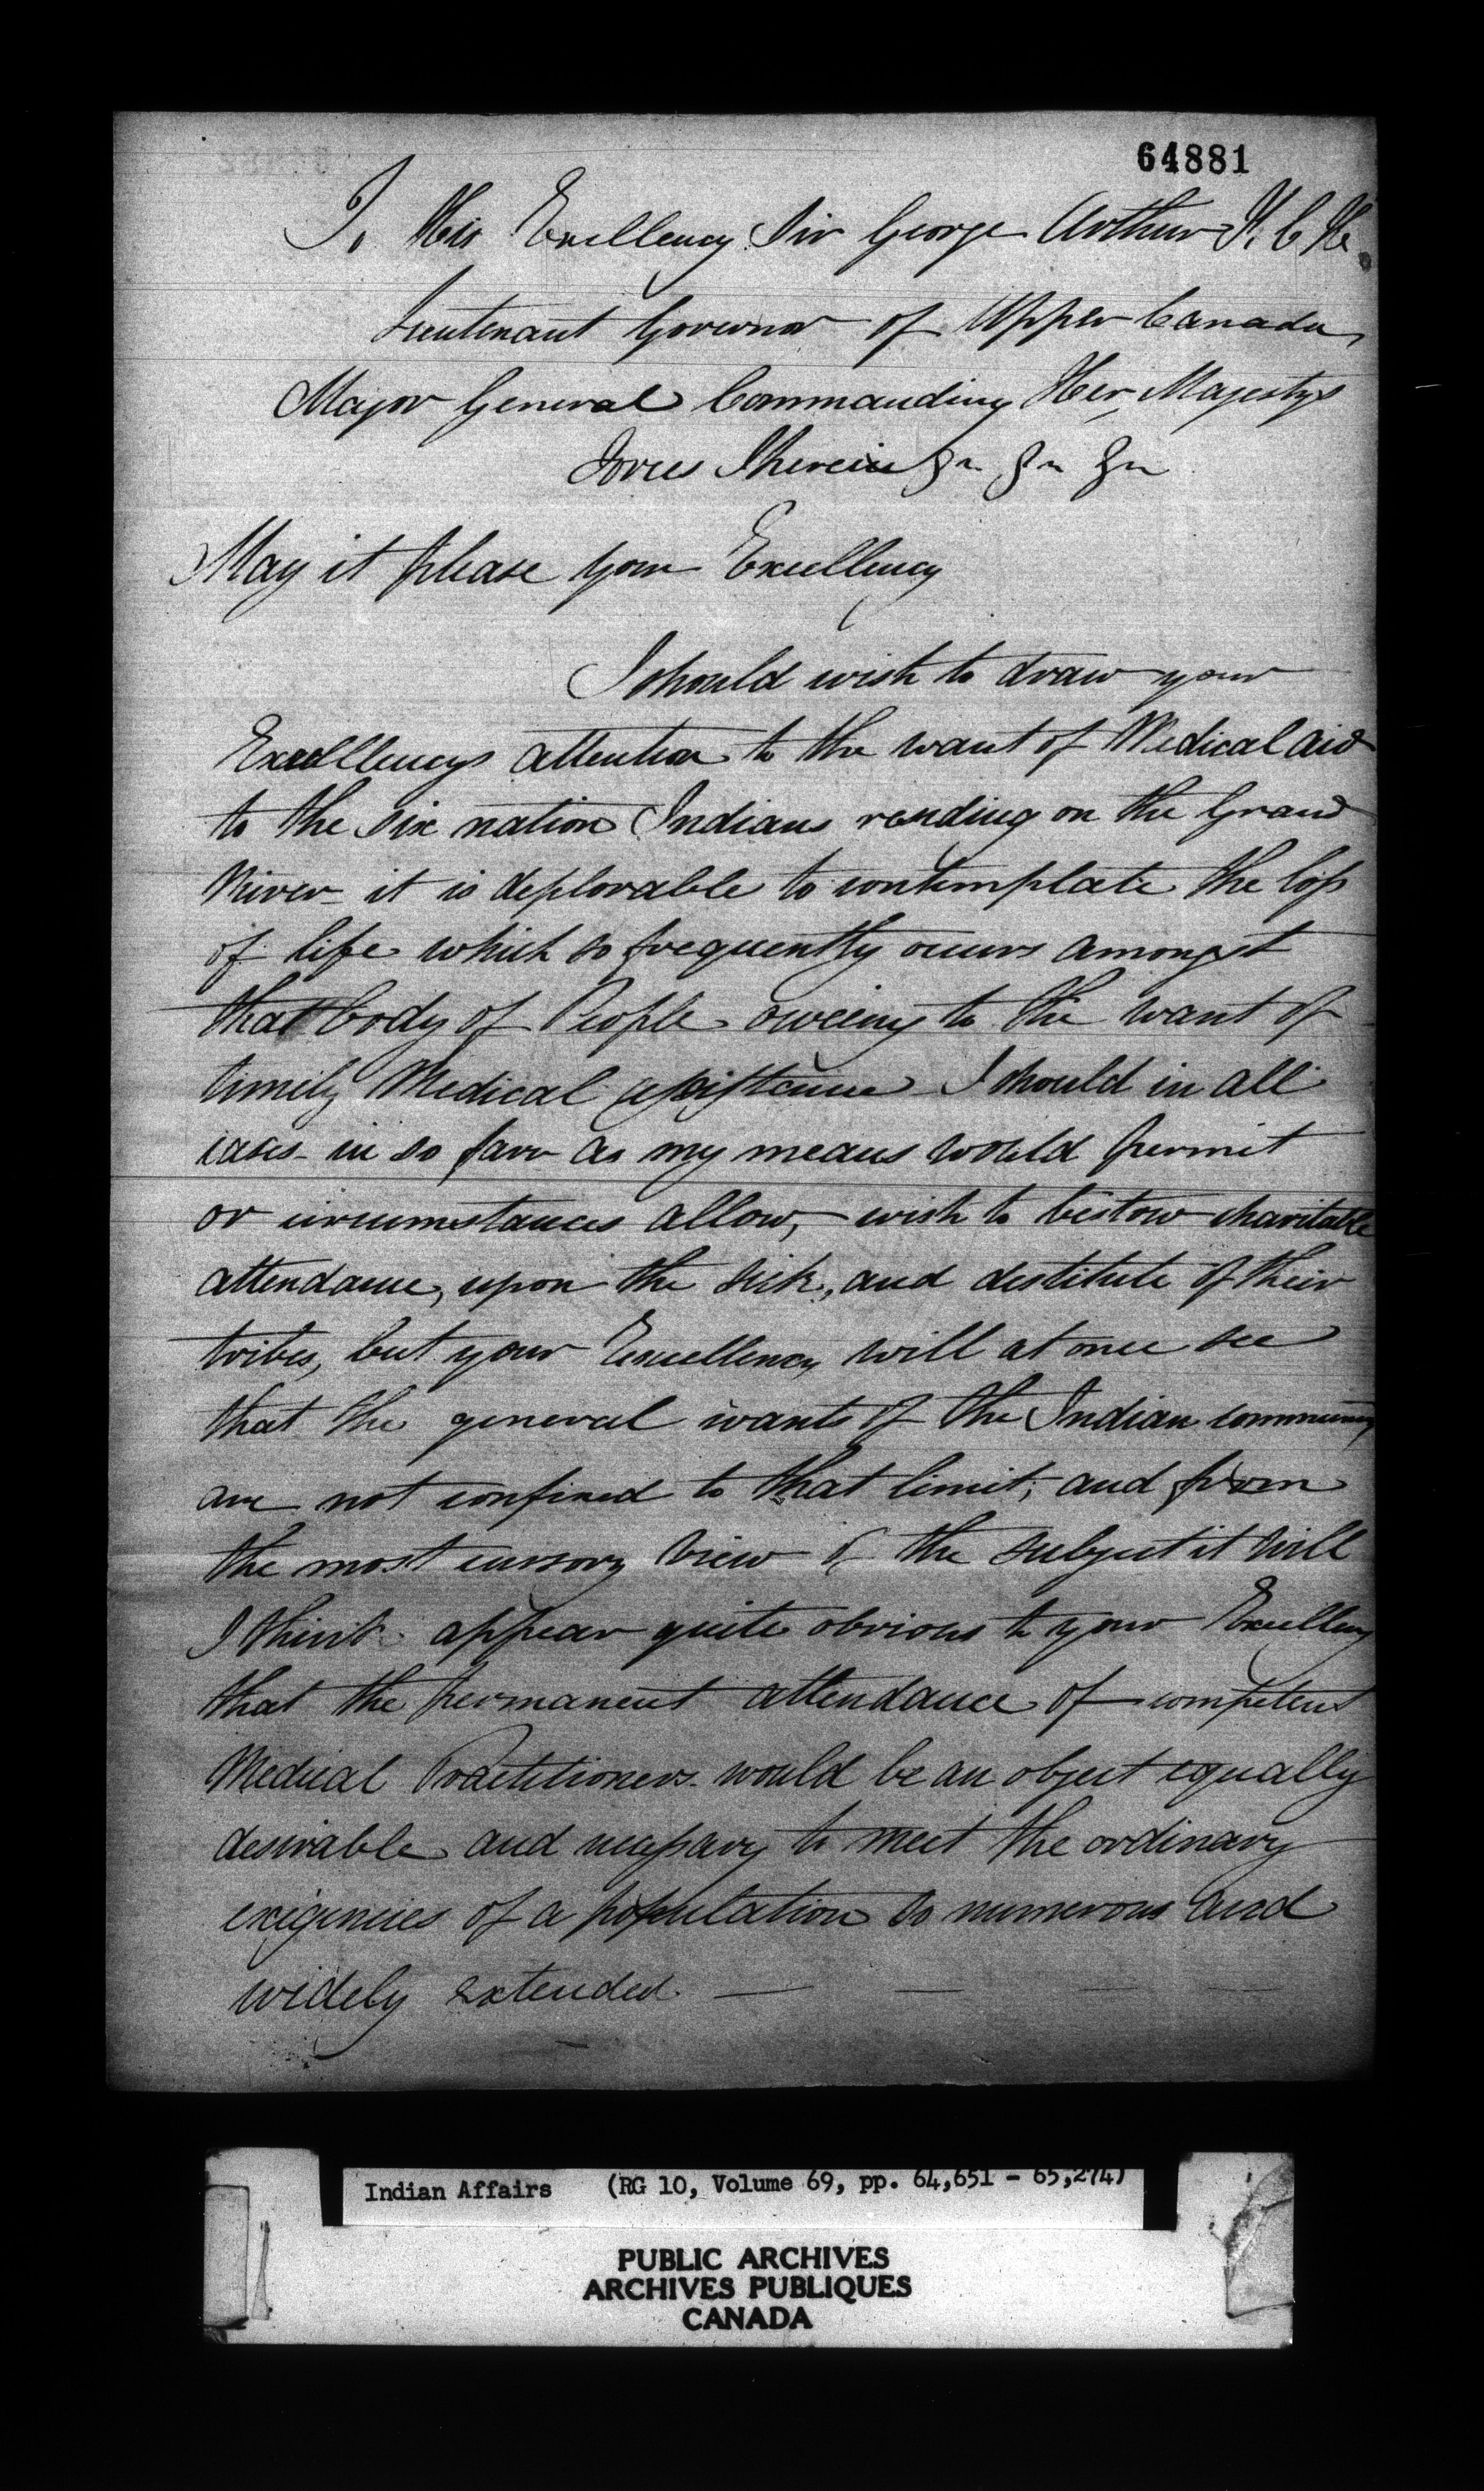 64881
To His Excellency Sir George Arthur K. C. H.
Lieutenant Governor of Upper Canada,
Major General Commanding Her Majestys
Forces Therein &c &c &c
May it please your Excellency
I should wish to draw your
Excellencys attention to the want of Medical aid
to the six nation Indians residing on the Grand
River - it is deplorable to contemplate the loss
of life which so frequently occurs amongst
that body of People oweing to the want of
timely Medical assistance - I should in all
cases - in so farr as my means would permit
or circumstances allow, - wish to bestow charitable
attendance, upon the sick, and destitute of their
tribes, but your Excellency will at once see
that the general wants of the Indian community
are not confined to that limit; and from
the most cursory view of the subject it will
I think appear quite obvious to your Excellency
that the permanent attendance of competent
Medical Practitioners would be an object equally
desirable and necessary to meet the ordinary
exigencies of a population so numerous and
widely extended. — — — —
Indian Affairs (RG 10, Volume 69, pp. 64,651 - 65,274)
PUBLIC ARCHIVES
ARCHIVES PUBLIQUES
CANADA